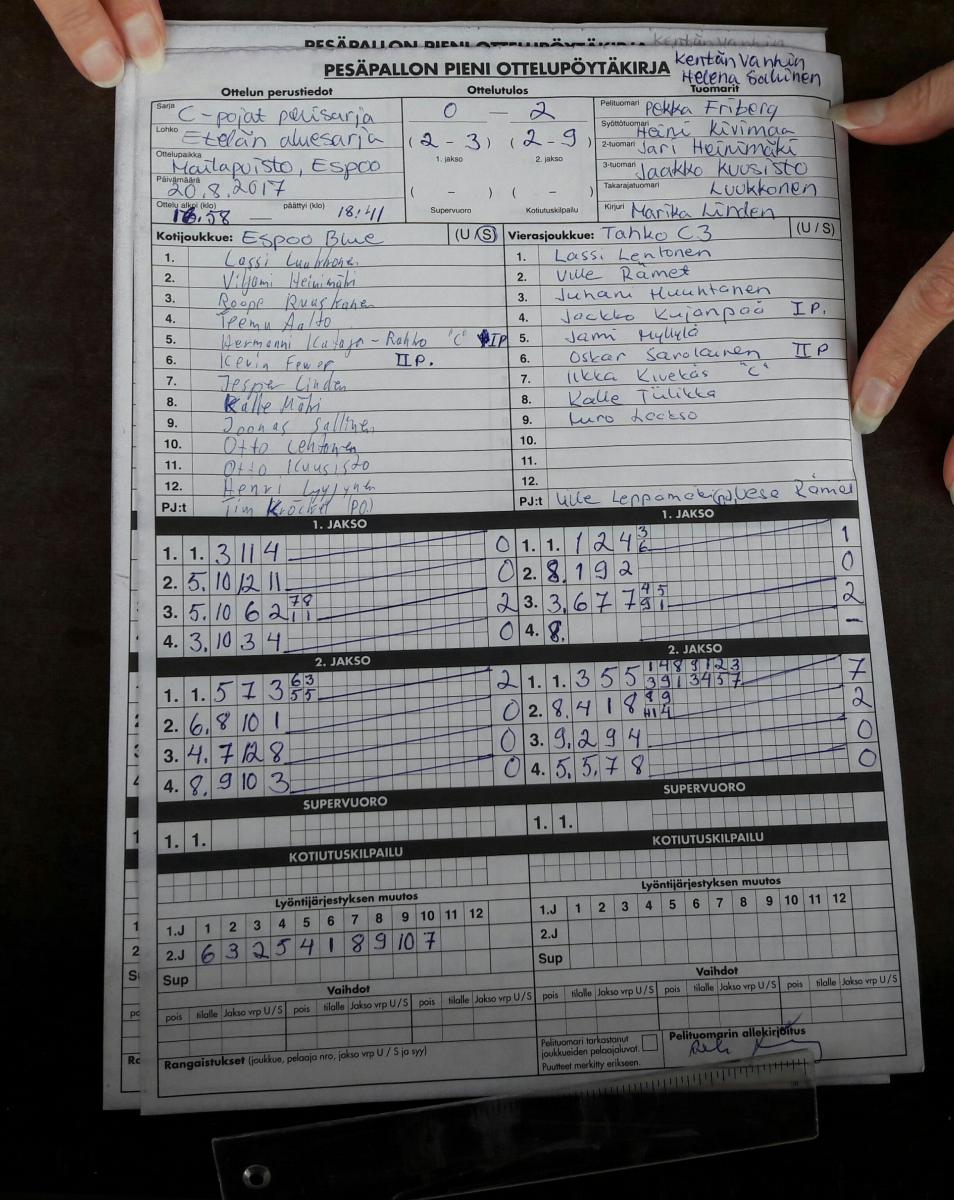 PESÄPALLON PIENI OTTELUPÖYTÄKIRJA
Kentän vanhin
Helena Salunen
Ottelun perustiedot
Sarja C-pojat perusarja
Lohko Etelän aluesarja
Ottelupaikka Mailapuisto, Espoo
Päivämäärä 20.8.2017
Ottelu alkoi (klo) 16.58 — päättyi (klo) 18:41
Ottelutulos
0 — 2
(2 - 3) (2 - 9)
1. jakso 2. jakso
( - ) ( - )
Supervuoro Kotiutuskilpailu
Tuomarit
Pelituomari Pekka Friberg
Syöttötuomari Heini Kivimaa
2-tuomari Jari Heinimäki
3-tuomari Jaakko Kuusisto
Takarajatuomari Luukkonen
Kirjuri Marika Linden
Kotijoukkue: Espoo Blue (U / S)
1. Lassi Luukkonen
2. Viljami Heinimäki
3. Roope Ruuskanen
4. Teemu Aalto
5. Hermanni - Rahko "C" IP
6. Kevin Fewer II P.
7. Jesper Linden
8. Kalle Mäki
9. Joonas Sallinen
10. Otto Lehtonen
11. Otto Kuusisto
12. Henri
PJ:t Tim (PO)
Vierasjoukkue: Tahko C3 (U / S)
1. Lassi Lentonen
2. Ville Rämet
3. Juhani Huuhtanen
4. Jaakko Kujanpää I P.
5. Jami Myllylä
6. Oskar Savolainen II P
7. Ilkka Kivekäs "C"
8. Kalle Tulikka
9. Luro Laakso
10.
11.
12.
PJ:t Ville Leppämäki (pj), Vesa Rämet
1. JAKSO
1. 1. 3 11 4 0
2. 5. 10 12 11 0
3. 5. 10 6 2 7 8 1 1 2
4. 3. 10 3 4 0
1. JAKSO
1. 1. 1 2 4 3 6 1
2. 8. 1 9 2 0
3. 3. 6 7 7 4 5 9 1 2
4. 8. –
2. JAKSO
1. 1. 5 7 3 6 3 5 5 2
2. 6. 8 10 1 0
3. 4. 7 12 8 0
4. 8. 9 10 3 0
2. JAKSO
1. 1. 3 5 5 1 4 8 9 1 2 3 3 9 1 3 4 5 7 7
2. 8. 4 1 8 8 9 4 2
3. 9. 2 9 4 0
4. 5. 5 7 8 0
SUPERVUORO
1. 1.
SUPERVUORO
1. 1.
KOTIUTUSKILPAILU
KOTIUTUSKILPAILU
Lyöntijärjestyksen muutos
1.J 1 2 3 4 5 6 7 8 9 10 11 12
2.J 6 3 2 5 4 1 8 9 10 7
Sup
Lyöntijärjestyksen muutos
1.J 1 2 3 4 5 6 7 8 9 10 11 12
2.J
Sup
Vaihdot
pois tilalle Jakso vrp U / S pois tilalle Jakso vrp U / S pois tilalle Jakso vrp U / S
Vaihdot
pois tilalle Jakso vrp U / S pois tilalle Jakso vrp U / S pois tilalle Jakso vrp U / S
Rangaistukset (joukkue, pelaaja nro, jakso vrp U / S ja syy)
Pelituomari tarkastanut
joukkueiden pelaajaluvat.
Puutteet merkitty erikseen.
Pelituomarin allekirjoitus